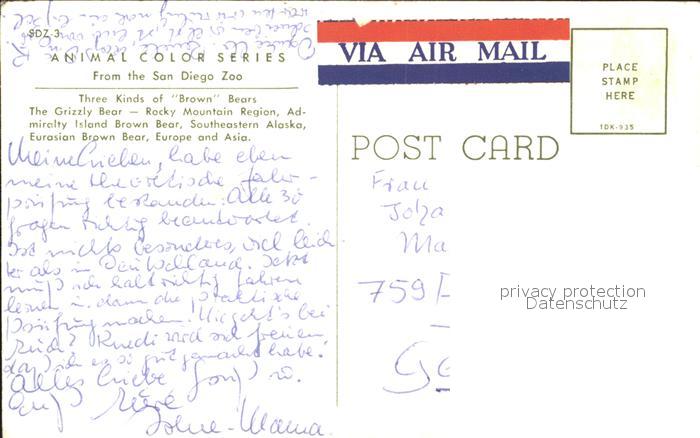 SDZ-3
ANIMAL COLOR SERIES
From the San Diego Zoo
Three Kinds of "Brown" Bears
The Grizzly Bear — Rocky Mountain Region, Ad-
miralty Island Brown Bear, Southeastern Alaska,
Eurasian Brown Bear, Europe and Asia.
Meine Lieben, habe eben
meine theoretische Fahr-
prüfung bestanden. Alle 30
Fragen richtig beantwortet.
Ist nichts besonderes, viel leich
ter als in Deutschland. Jetzt
muß ich halt richtig fahren
lernen u. dann die praktische
Prüfung machen. Wie geht's bei
Euch? wird sich freuen,
daß ich es so gut gemacht habe.
Alles Liebe u.
VIA AIR MAIL
PLACE
STAMP
HERE
TDK-935
POST CARD
Frau
Joha
Ma
759
privacy protection
Datenschutz